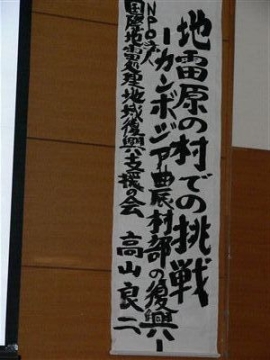 地雷原の村での挑戦
ーカンボジア農村部の復興ー
NPO法人
国際地雷処理・地域復興支援の会
高山良二